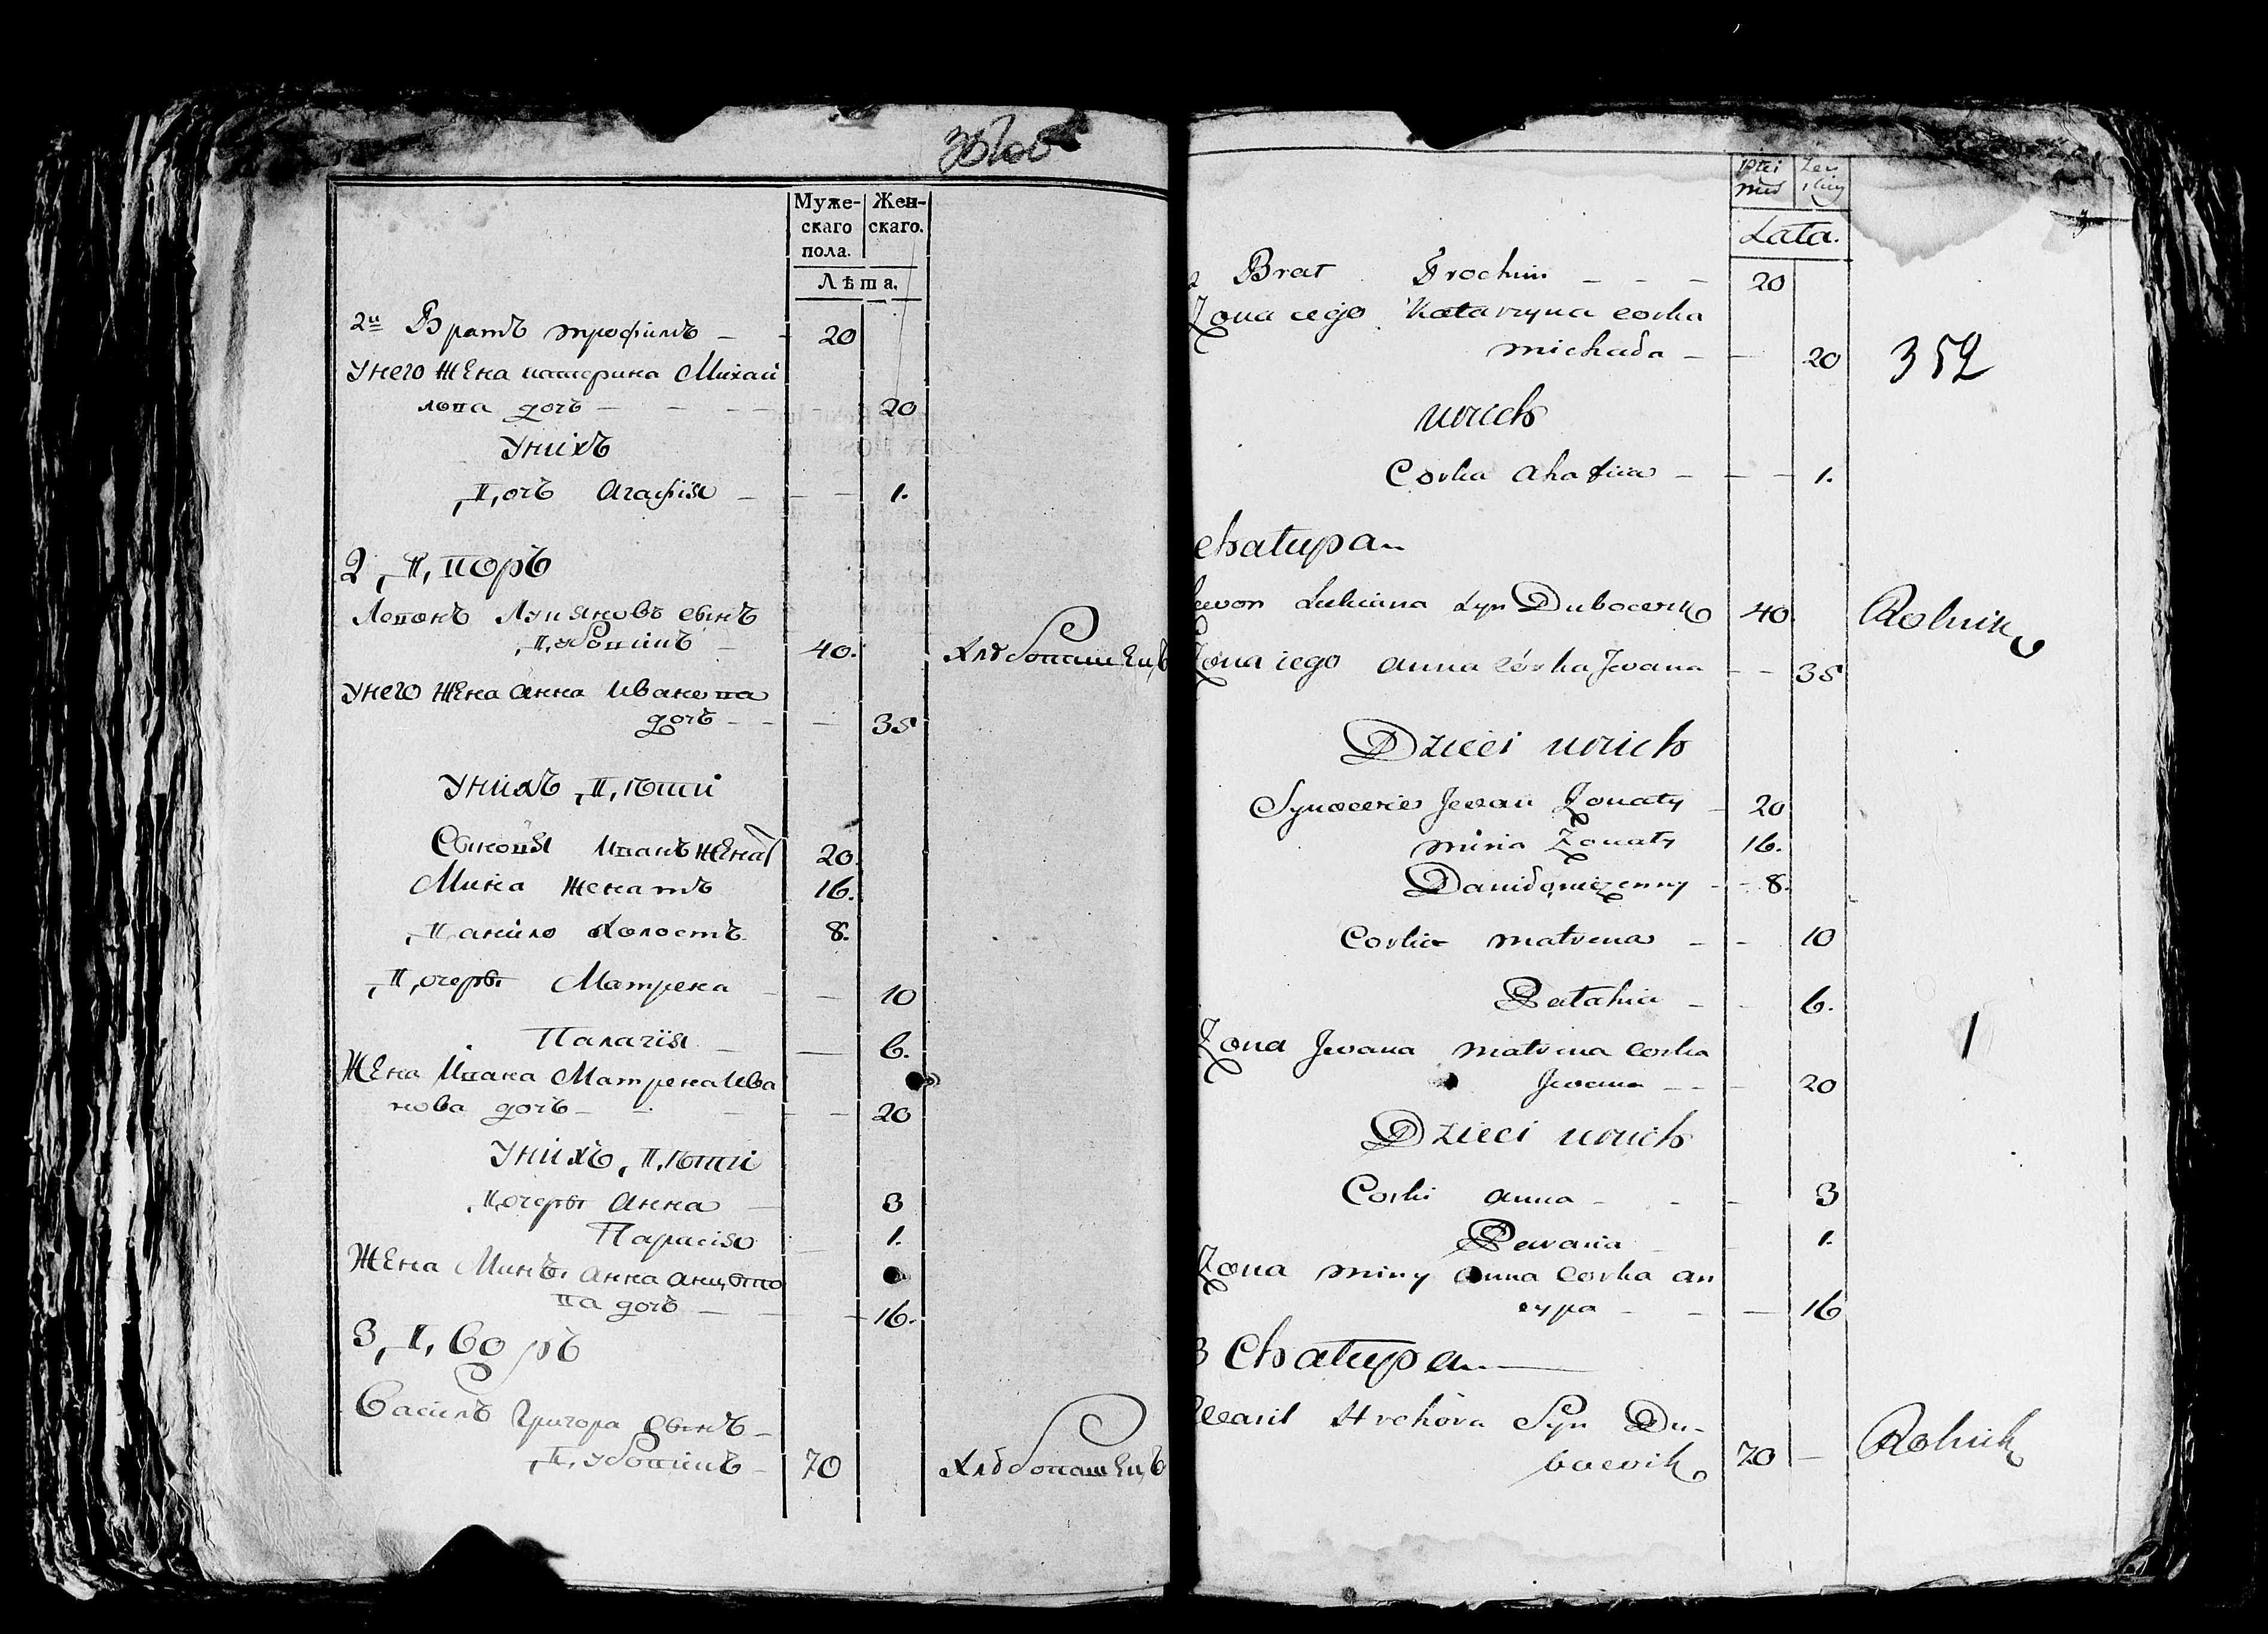 Муже-
скаго
пола.
Жен-
скаго.
Лѣта.
2й Братъ трофимъ – 20
Унего жена катерина Михай
лова дочь – 20
Унихъ
Дочь Агафія – 1.
2 Дворъ
Левонъ Лукяновъ сынъ
40. Хлѣбопашецъ
Унего жена Анна Иванова
дочь – 35
Унихъ Дѣти
Сыновья Иванъ женатъ 20.
Мина женатъ 16.
Данило холостъ 8.
Дочери Матрена – 10
Палагія – 6.
Жена Ивана Матрена Ива
нова дочь – 20
Унихъ Дѣти
Дочери Анна 3
1.
Жена Мины Анна
ва дочь – 16.
3 Дворъ
Василь Григора сынъ –
70 Хлѣбопашецъ
Lata.
Brat Trochim – – – 20
Zona iego Katarzyna corka
michała – 20
352
unich
Corka ahafia – 1.
chatupa
Lewon Lukiana syn 40. Rolnik
Zona iego anna córka Jwana – 35
Dzieci unich
Synowie Jwan Zonaty – 20
mina Zonaty 16.
Daniło niezenny – 8.
Corka matrena – 10
Palahia – 6.
1
Zona Jwana matrena corka
Jwana – 20
Dzieci unich
Corki anna – 3
1.
Zona miny anna corka an
cypa – 16
3 Chatupa
Wasil Syn Du-
70 – Rolnik